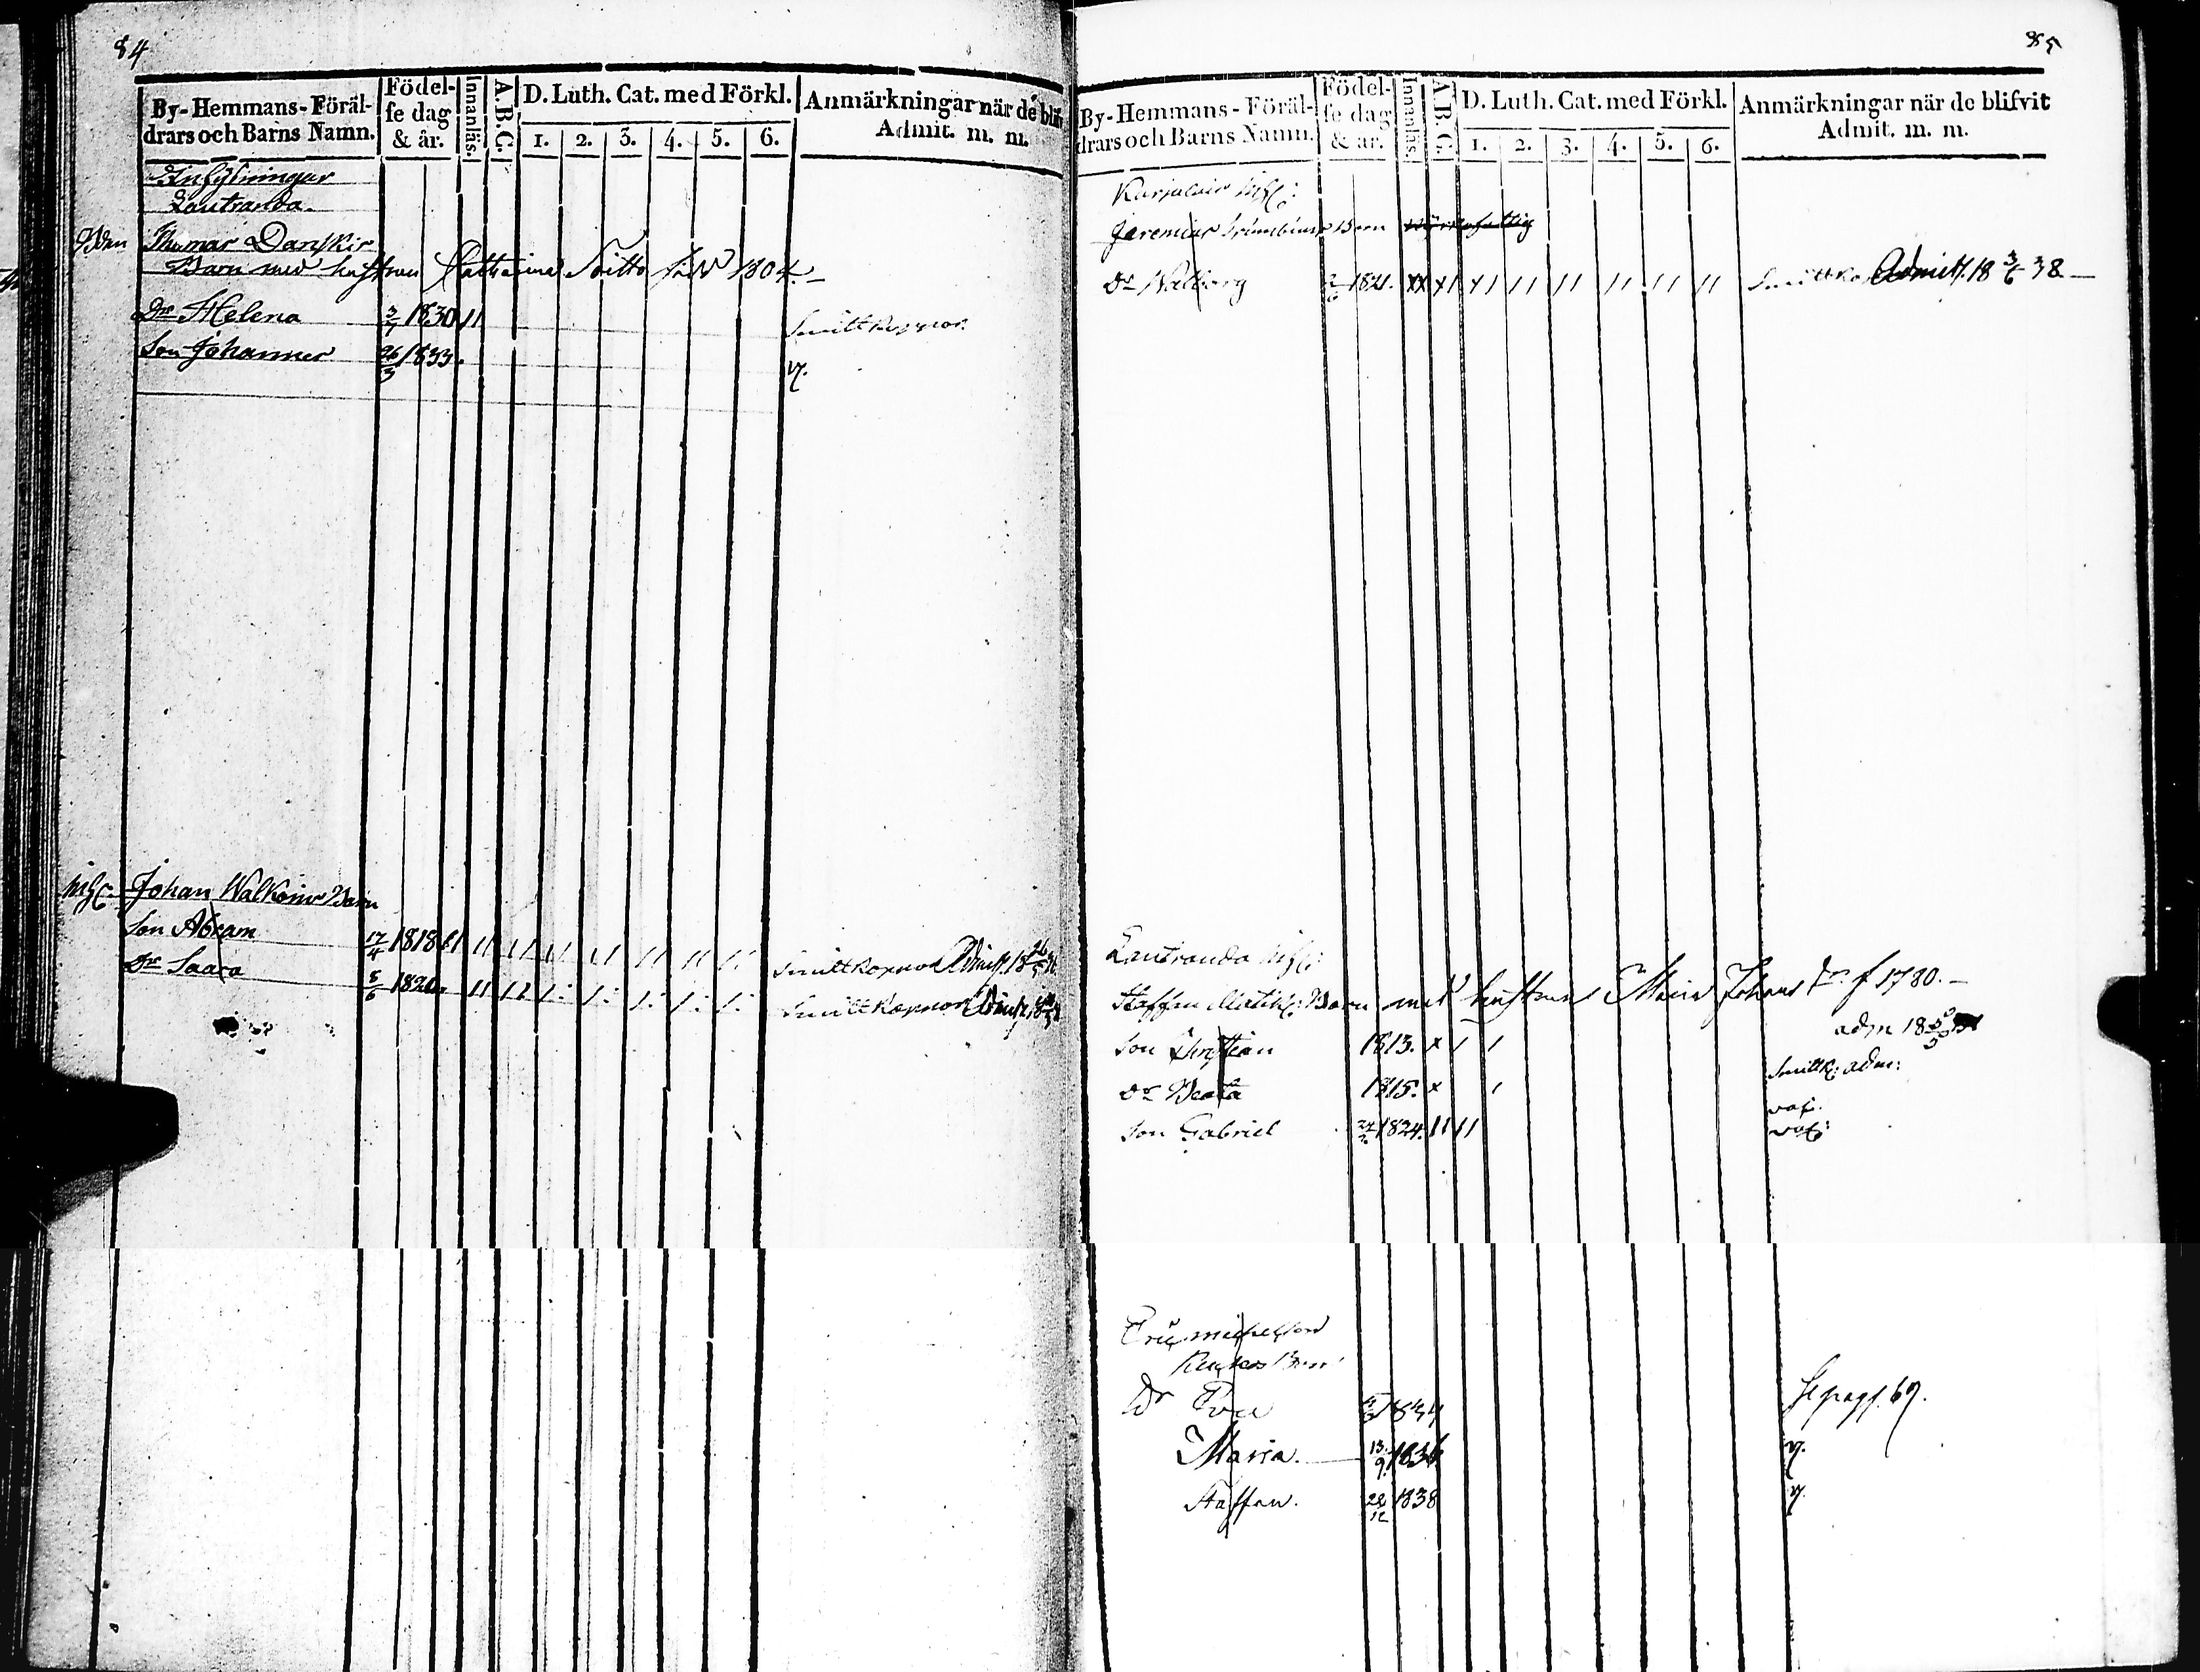 84
By-Hemmans-Föräl-
drars och Barns Namn.
Födel-
se dag
& år.
Innanläs.
A.B.C.
D. Luth. Cat. med Förkl.
1. 2. 3. 4. 5. 6.
Anmärkningar när de blifv
Admit. m. m.
Lautranda.
Thomas Danskis
Barn med hustrun Catharina Soitto född 1804.
Dr Helena 3/7 1830 11 Smittkoppor
Son Johannes 26/3 1833.
inhs: Johan Walkoins Barn
Son Abram 17/4 1818 11 11 11 11 11 11 11 11 Smittkoppor Admitt. 18
Dr Saara 8/6 1820. 11 Smittkoppor Admitt. 18
85
By-Hemmans-Föräl-
drars och Barns Namn.
Födel-
se dag
& år.
Innanläs.
A.B.C.
D. Luth. Cat. med Förkl.
1. 2. 3. 4. 5. 6.
Anmärkningar när de blifvit
Admit. m. m.
Karjalais inhs:
Jeremias Barn
Dr Walborg 1821. xx x1 x1 11 11 11 11 11 Smittko Admitt. 18 3/6 38
Lautranda inhs:
Staffan Barn med hustrun Maria Johans dr. f 1780.
adm 18
Son Christian 1813. x 1 1 Smittk: adm:
Dr Beata 1815. x 1 vac.
Son Gabriel 1824. 11 11 vac:
Eric
Barn
Dr Eva 1834 se pag. 67.
Maria. 13/9 1836
Staffan. 22/12 1838